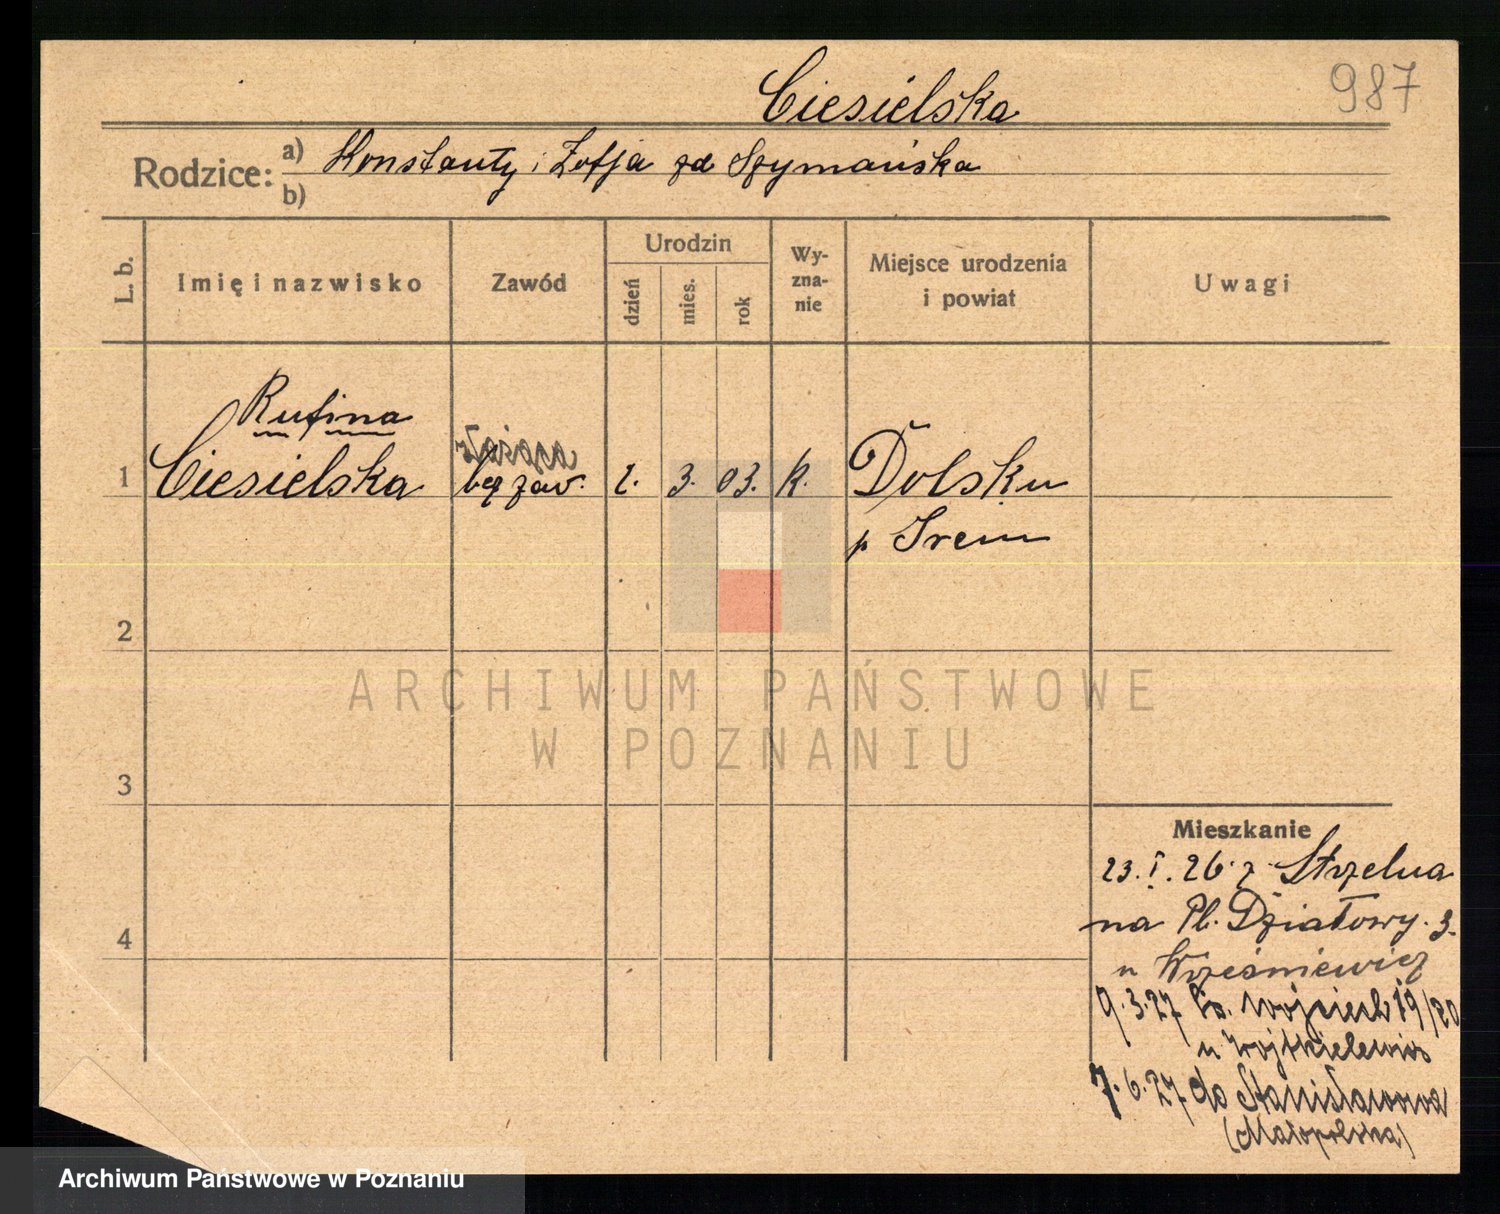 Ciesielska
987
Rodzice: a) Konstanty i Zofja zd Szymańska
b)
L. b.
Imię i nazwisko
Zawód
Urodzin
dzień
mies.
rok
Wy-
zna-
nie
Miejsce urodzenia
i powiat
Uwagi
Rufina
służąca
1 Ciesielska bez zaw. 2. 3. 03. k. Dolsku
p Śrem
2
3
4
Mieszkanie
23. I. 26 z Strzelna
na Pl. Działowy. 3.
u Wrześniewicz
9.3.27 Św. Wojciech 19/20
u Wojtkielewicz
7.6.27 do Stanisławowa
(Małopolska)
ARCHIWUM PAŃSTWOWE
W POZNANIU
Archiwum Państwowe w Poznaniu